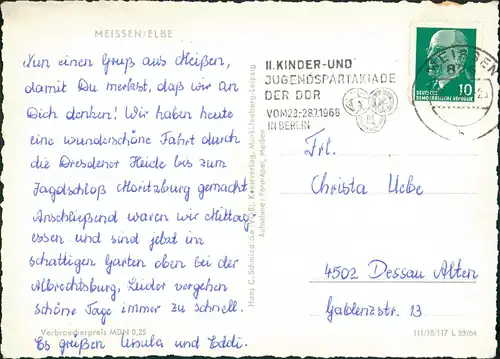 MEISSEN/ELBE
Nun einen Gruß aus Meißen,
damit Du merkst, daß wir an
Dich denken! Wir haben heute
eine wunderschöne Fahrt durch
die Dresdener Heide bis zum
Jagdschloß Moritzburg gemacht
Anschließend waren wir Mittag
essen und sind jetzt im
schattigen Garten oben bei der
Albrechtsburg. Leider vergehen
schöne Tage immer zu schnell.
Es grüßen Ursula und Eddi.
Verbraucherpreis MDN 0,25
Hans C. Schmiedicke (VOB), Kunstverlag, Markkleeberg-Leipzig
Aufnahme: Foto-Aper, Meißen
II. KINDER-UND
JUGENDSPARTAKIADE
DER DDR
VOM 23-28.7.1968
IN BERLIN
10
DEUTSCHE
DEMOKRATISCHE REPUBLIK
Frl.
Christa Uebe
4502 Dessau Alten
13
III/18/117 L 23/64